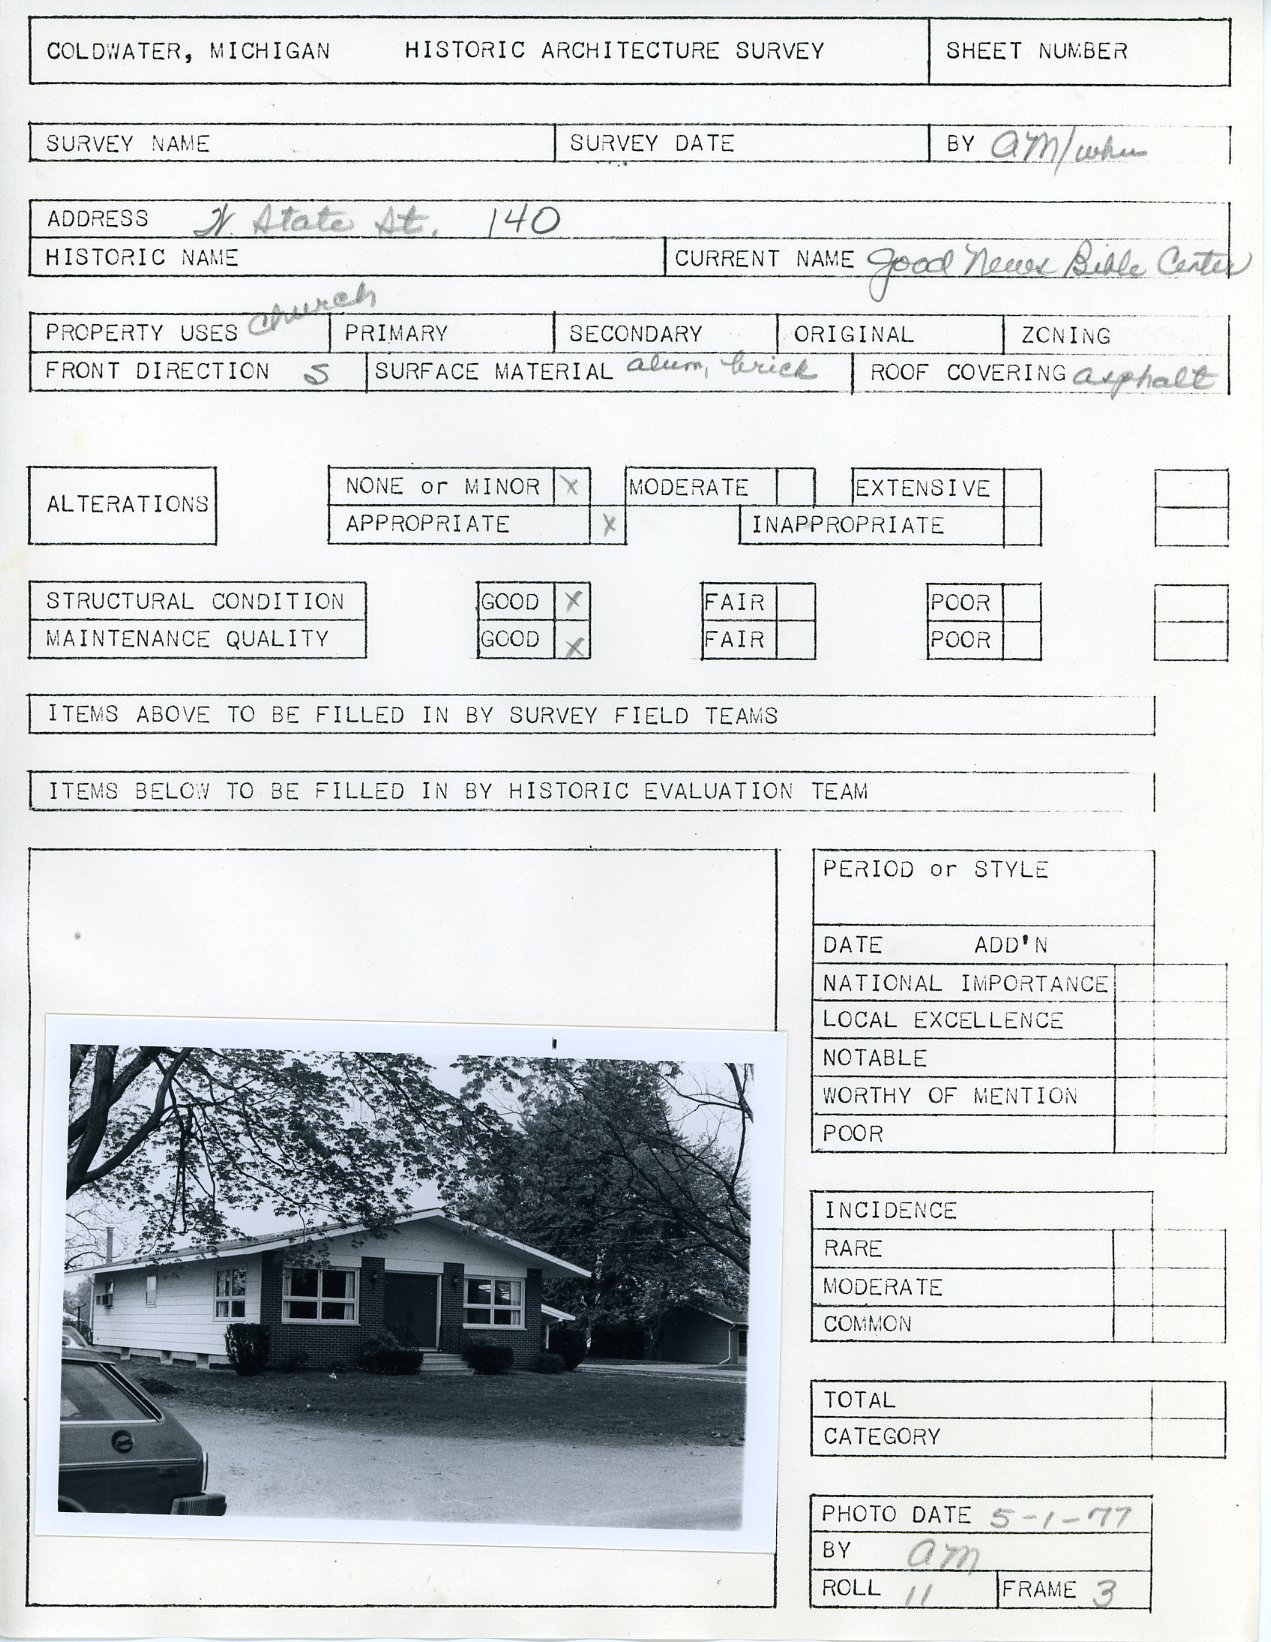 COLDWATER, MICHIGAN HISTORIC ARCHITECTURE SURVEY SHEET NUMBER
SURVEY NAME SURVEY DATE BY AM/
ADDRESS State St. 140
HISTORIC NAME CURRENT NAME Good News Bible Center
PROPERTY USES church PRIMARY SECONDARY ORIGINAL ZONING
FRONT DIRECTION S SURFACE MATERIAL alum, brick ROOF COVERING asphalt
ALTERATIONS NONE or MINOR X MODERATE EXTENSIVE
APPROPRIATE X INAPPROPRIATE
STRUCTURAL CONDITION GOOD X FAIR POOR
MAINTENANCE QUALITY GOOD X FAIR POOR
ITEMS ABOVE TO BE FILLED IN BY SURVEY FIELD TEAMS
ITEMS BELOW TO BE FILLED IN BY HISTORIC EVALUATION TEAM
PERIOD or STYLE
DATE ADD'N
NATIONAL IMPORTANCE
LOCAL EXCELLENCE
NOTABLE
WORTHY OF MENTION
POOR
INCIDENCE
RARE
MODERATE
COMMON
TOTAL
CATEGORY
PHOTO DATE 5-1-77
BY AM
ROLL 11 FRAME 3